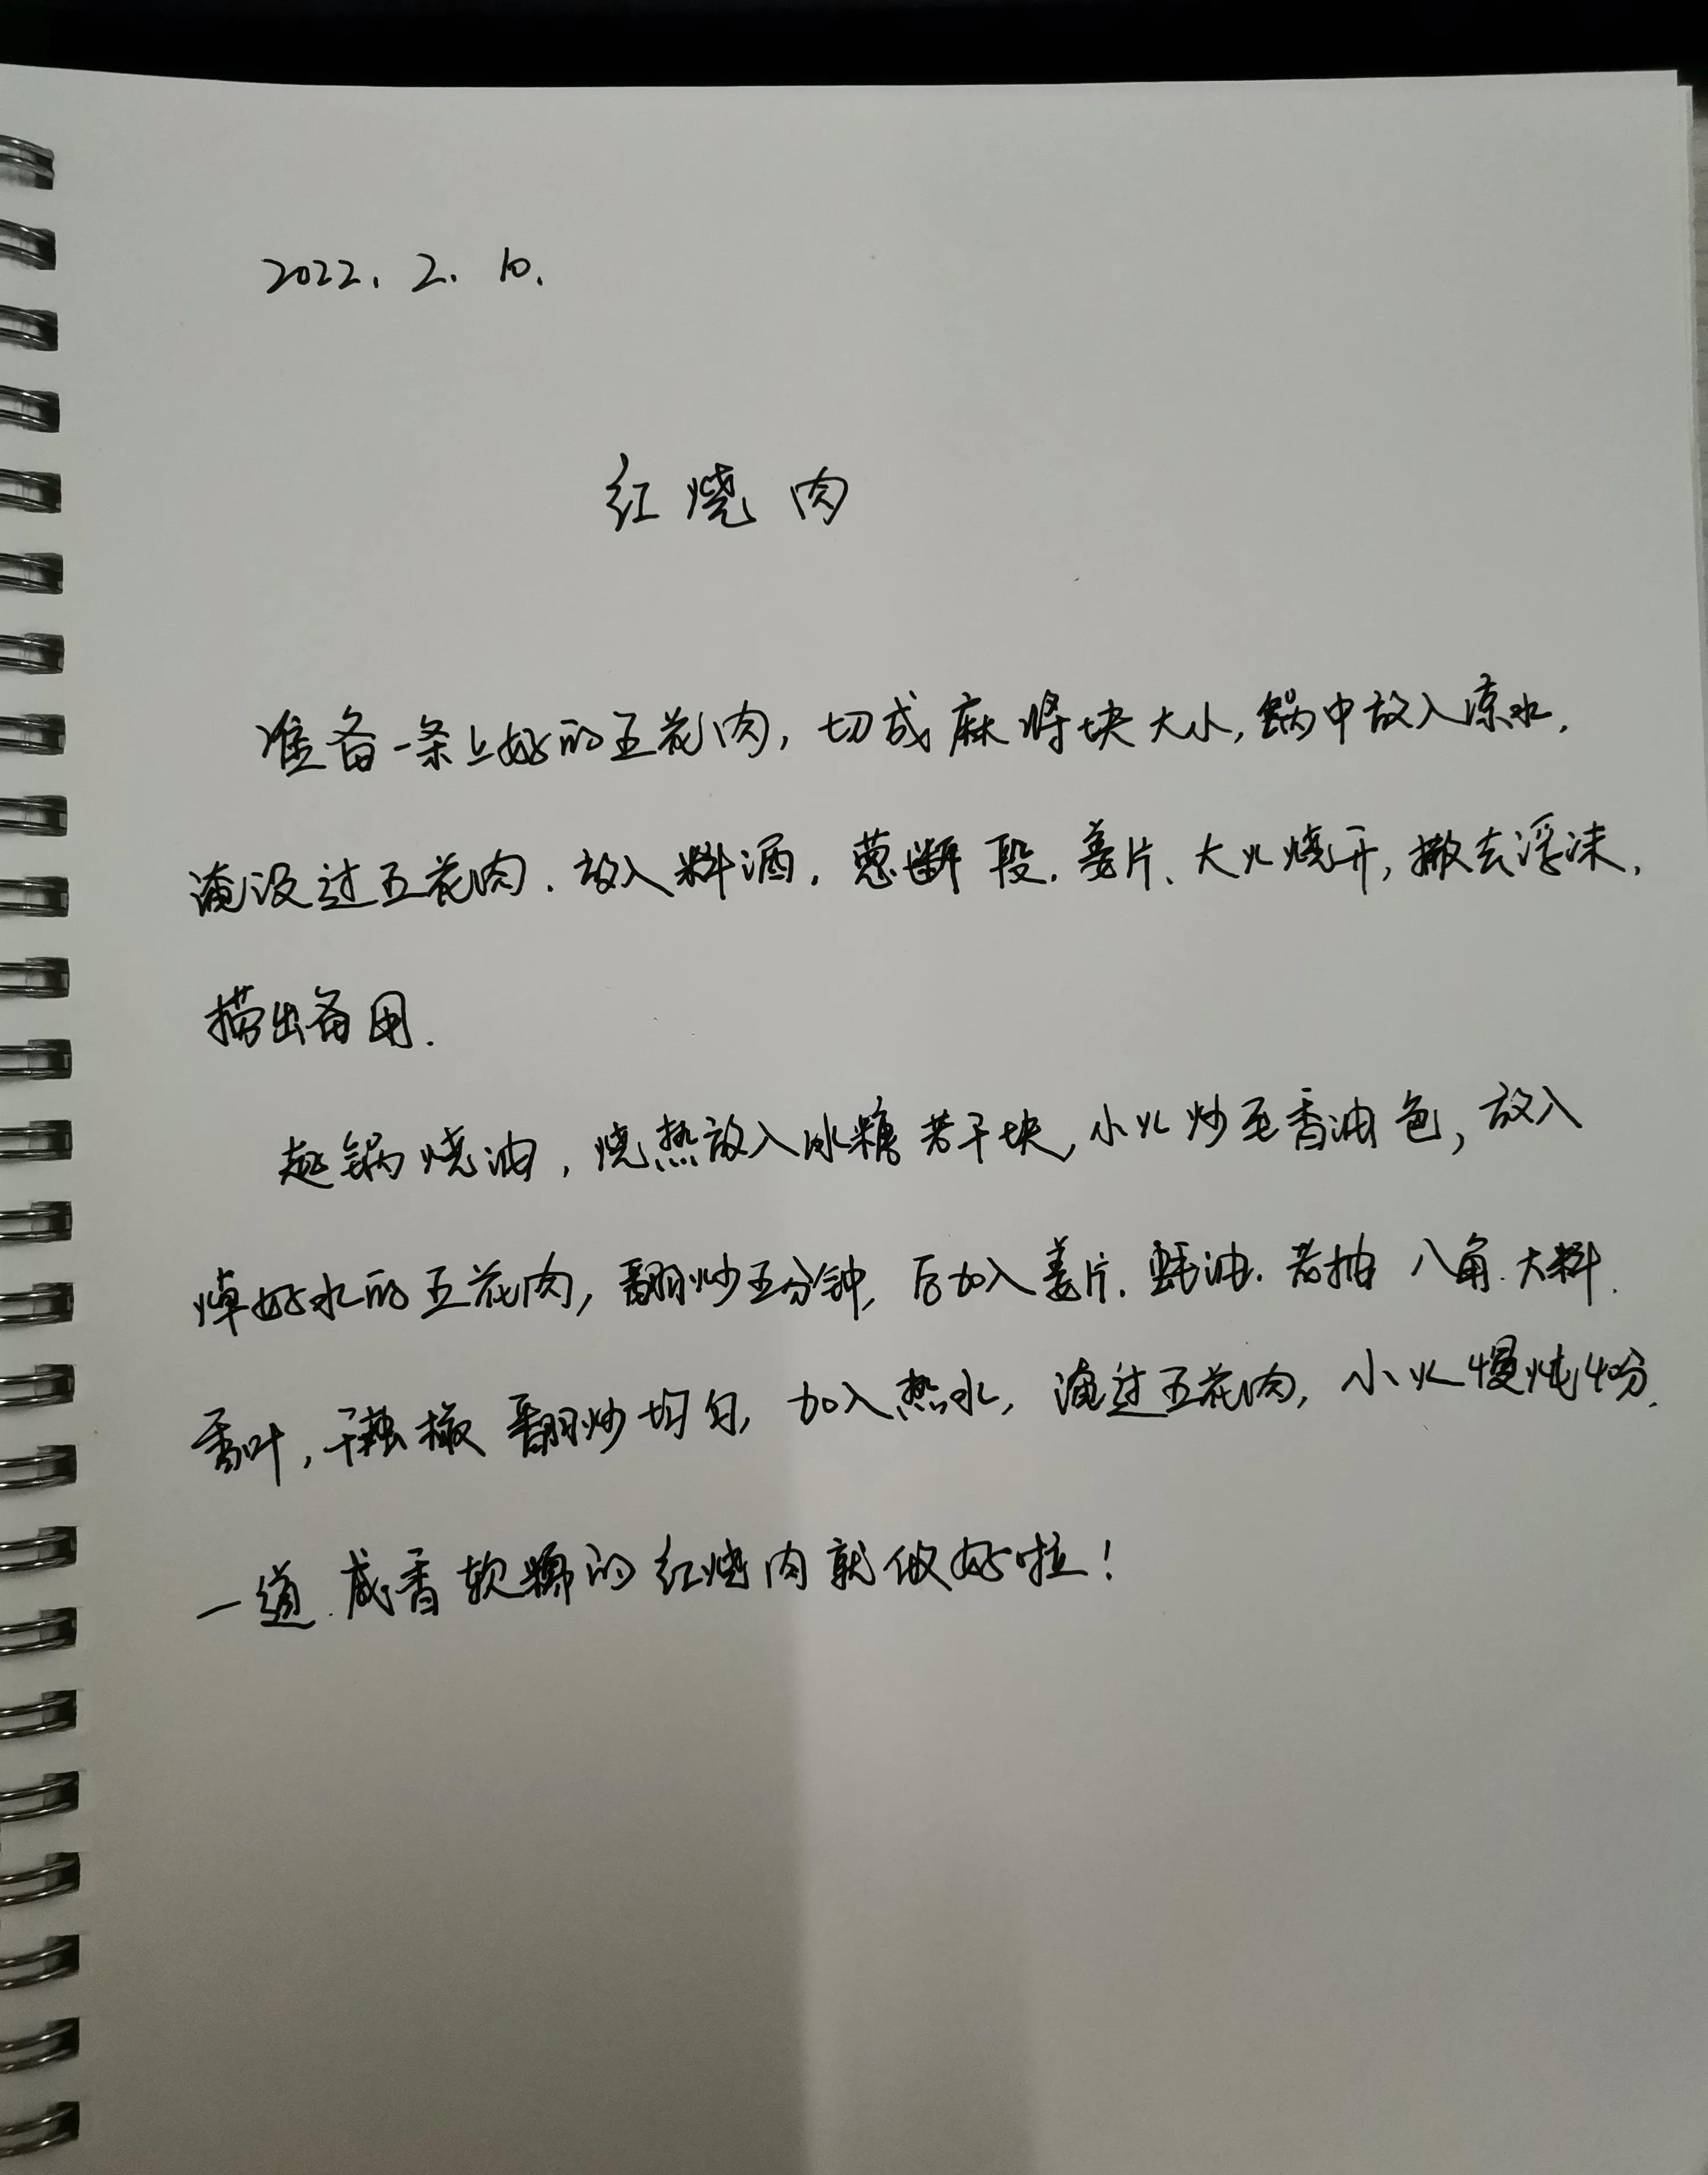 2022. 2. 10.
红烧肉
准备一条上好的五花肉，切成麻将块大小，锅中放入凉水，
淹没过五花肉．放入料酒．葱断段．姜片、大火烧开，撇去浮沫，
捞出备用．
起锅烧油，烧热放入冰糖若干块，小火炒至香油色，放入
焯好水的五花肉，翻炒五分钟，后加入姜片．蚝油．老抽 八角．大料．
香叶，干辣椒 翻炒均匀，加入热水，淹过五花肉，小火慢炖40分．
一道．咸香软糯的红烧肉就做好啦！